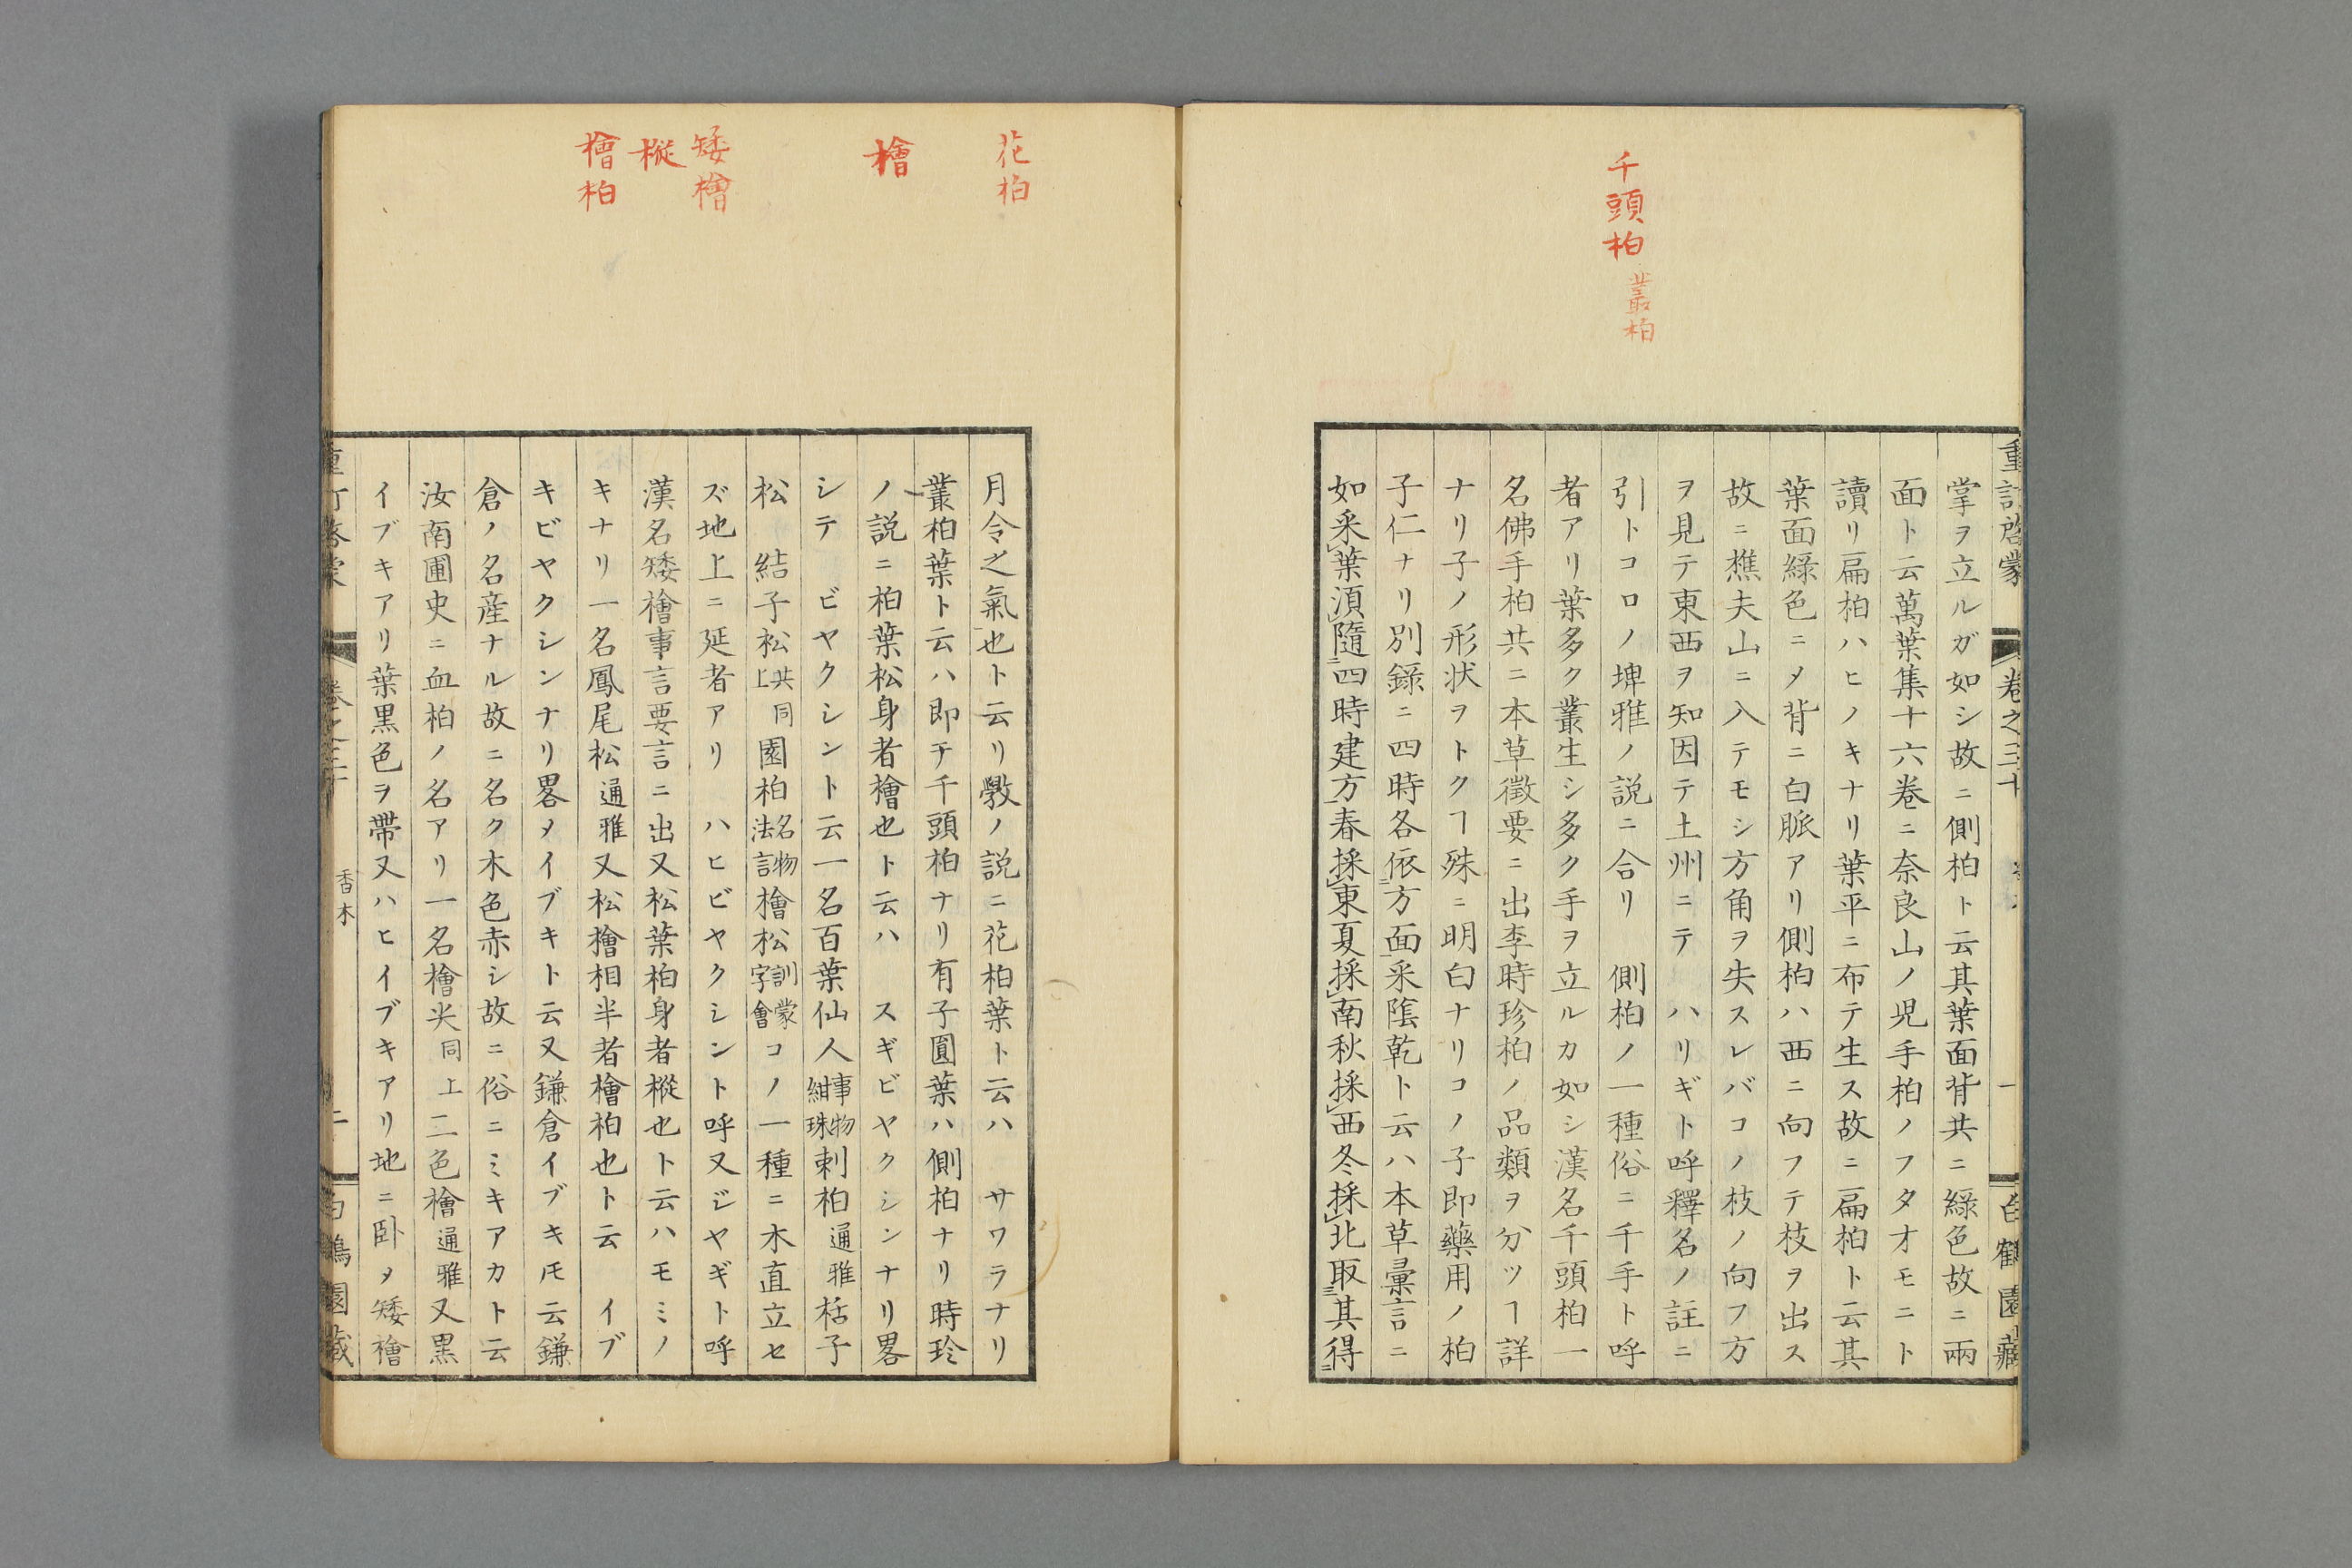 千頭柏
叢柏
重訂啓蒙 卷之三十 一 白鶴園藏
掌ヲ立ルガ如シ故ニ側柏ト云其葉面背共ニ綠色故ニ兩
面ト云萬葉集十六卷ニ奈良山ノ児手柏ノフタオモニト
讀リ扁柏ハヒノキナリ葉平ニ布テ生ス故ニ扁柏ト云其
葉面綠色ニメ背ニ白脈アリ側柏ハ西ニ向フテ枝ヲ出ス
故ニ樵夫山ニ入テモシ方角ヲ失スレバコノ枝ノ向フ方
ヲ見テ東西ヲ知因テ土州ニテ ハリギト呼釋名ノ註ニ
引トコロノ埤雅ノ説ニ合リ 側柏ノ一種俗ニ千手ト呼
者アリ葉多ク叢生シ多ク手ヲ立ルカ如シ漢名千頭柏一
名佛手柏共ニ本草徵要ニ出李時珍柏ノ品類ヲ分ツヿ詳
ナリ子ノ形状ヲトクヿ殊ニ明白ナリコノ子即藥用ノ柏
子仁ナリ別錄ニ四時各依方面采陰乾ト云ハ本草彙言ニ
如采葉湏隨四時建方春採東夏採南秋採西冬採北取其得
花柏
檜
矮檜
樅
檜柏
月令之氣也ト云リ斆ノ説ニ花柏葉ト云ハ サワラナリ
叢柏葉ト云ハ即チ千頭柏ナリ有子圓葉ハ側柏ナリ時珍
ノ説ニ柏葉松身者檜也ト云ハ スギビヤクシンナリ畧
シテ ビヤクシント云一名百葉仙人事物紺珠刺柏通雅栝子
松 結子松共同上園柏名物法言檜松訓蒙字會コノ一種ニ木直立セ
ズ地上ニ延者アリ ハヒビヤクシント呼又ジヤギト呼
漢名矮檜事言要言ニ出又松葉柏身者樅也ト云ハモミノ
キナリ一名鳳尾松通雅又松檜相半者檜柏也ト云 イブ
キビヤクシンナリ畧メイブキト云又鎌倉イブキㇳモ云鎌
倉ノ名産ナル故ニ名ク木色赤シ故ニ俗ニミキアカト云
汝南圃史ニ血柏ノ名アリ一名檜尖同上二色檜通雅又黒
イブキアリ葉黒色ヲ帶又ハヒイブキアリ地ニ卧メ矮檜
香木